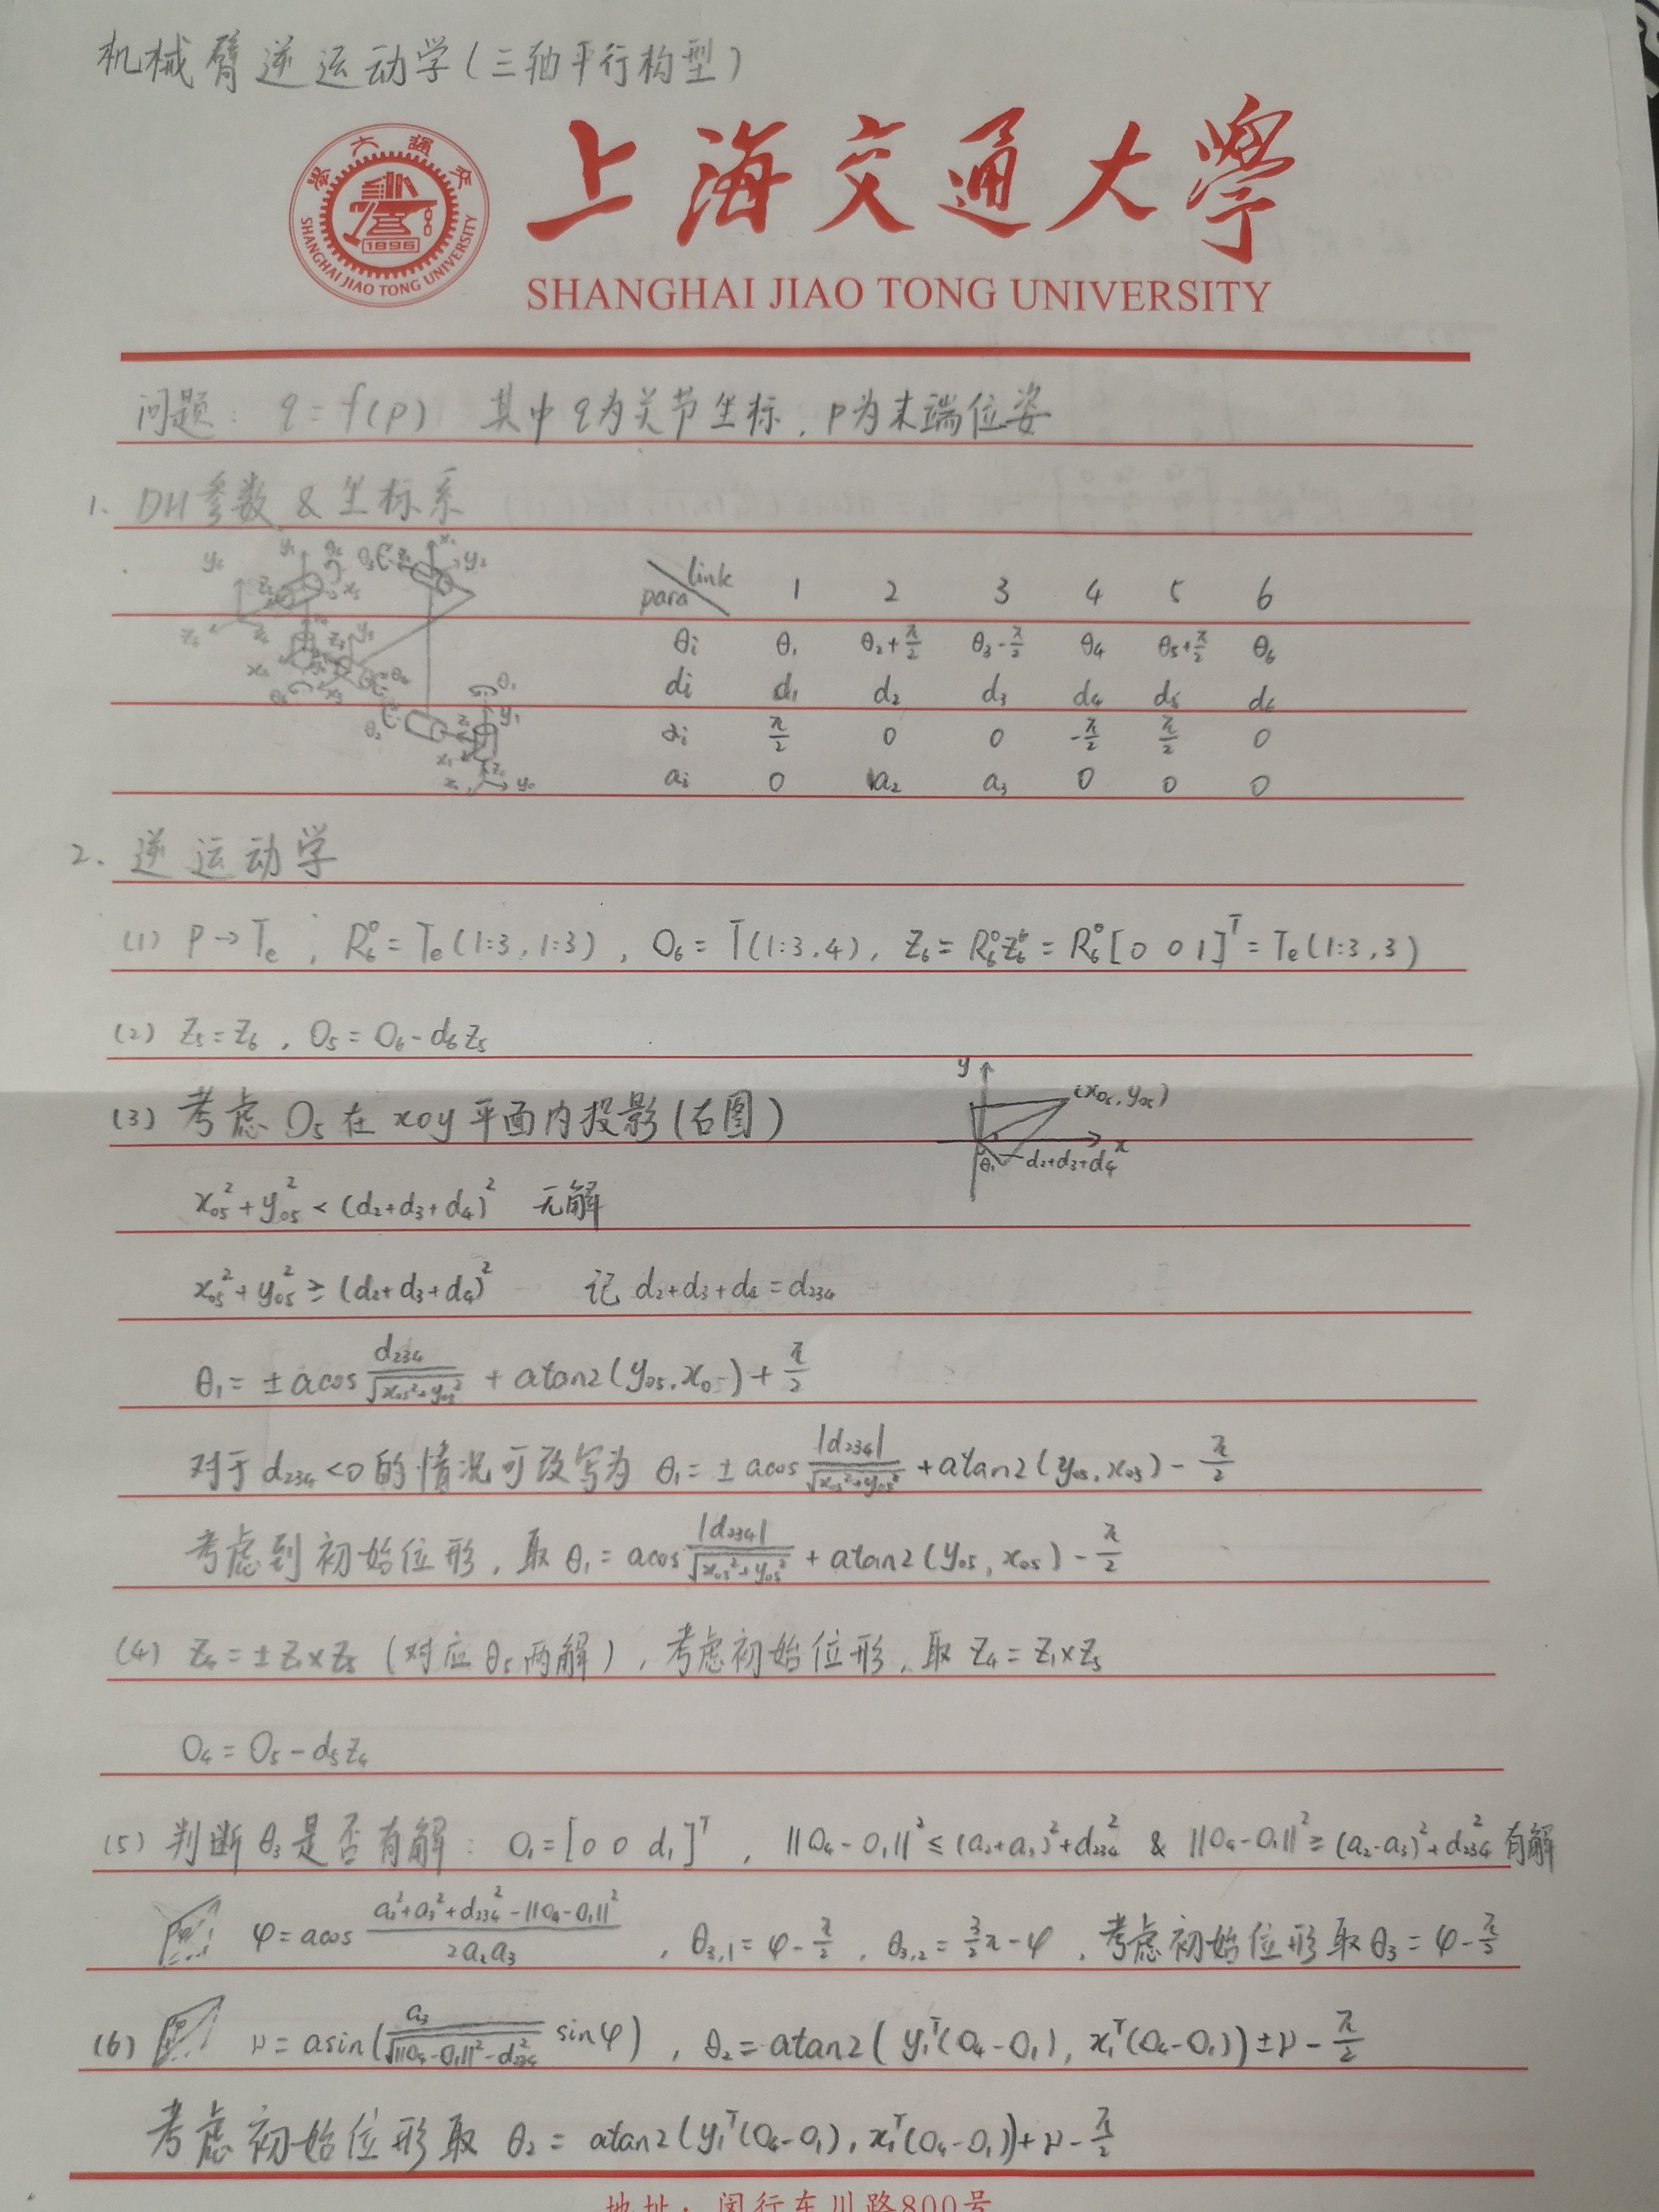 机械臂逆运动学(三轴平行构型)
上海交通大學
SHANGHAI JIAO TONG UNIVERSITY
1896
SHANGHAI JIAO TONG UNIVERSITY
问题: q = f(p) 其中 q为关节坐标, p为末端位姿
1. DH参数 & 坐标系
link 1 2 3 4 5 6
para
θi θ₁ θ₂+π/2 θ₃-π/2 θ₄ θ₅+π/2 θ₆
di d₁ d₂ d₃ d₄ d₅ d₆
αi π/2 0 0 -π/2 π/2 0
ai 0 a₂ a₃ 0 0 0
2. 逆运动学
(1) P→Te, R₆⁰=Te(1:3,1:3), O₆=T(1:3,4), Z₆=R₆⁰Z₆⁶=R₆⁰[0 0 1]ᵀ=Te(1:3,3)
(2) Z₅=Z₆, O₅=O₆-d₆Z₅
(3) 考虑O₅在xoy平面内投影(右图)
y (x₀₅,y₀₅)
x
θ₁ d₂+d₃+d₄
x₀₅²+y₀₅²<(d₂+d₃+d₄)² 无解
x₀₅²+y₀₅²≥(d₂+d₃+d₄)² 记 d₂+d₃+d₄=d₂₃₄
θ₁=±acos d₂₃₄/√(x₀₅²+y₀₅²) + atan2(y₀₅,x₀₅)+π/2
对于d₂₃₄<0的情况可改写为 θ₁=±acos |d₂₃₄|/√(x₀₅²+y₀₅²) + atan2(y₀₅,x₀₅)-π/2
考虑到初始位形, 取 θ₁=acos |d₂₃₄|/√(x₀₅²+y₀₅²) + atan2(y₀₅,x₀₅)-π/2
(4) Z₄=±Z₁×Z₅ (对应θ₅两解), 考虑初始位形, 取 Z₄=Z₁×Z₅
O₄=O₅-d₅Z₄
(5) 判断θ₃是否有解: O₁=[0 0 d₁]ᵀ, ||O₄-O₁||²≤(a₂+a₃)²+d₂₃₄² & ||O₄-O₁||²≥(a₂-a₃)²+d₂₃₄² 有解
φ=acos (a₂²+a₃²+d₂₃₄²-||O₄-O₁||²)/2a₂a₃, θ₃,₁=φ-π/2, θ₃,₂=3/2π-φ, 考虑初始位形取θ₃=φ-π/2
(6) μ=asin(a₃/√(||O₄-O₁||²-d₂₃₄²) sinφ), θ₂=atan2(y₁ᵀ(O₄-O₁), x₁ᵀ(O₄-O₁))±μ-π/2
考虑初始位形取 θ₂=atan2(y₁ᵀ(O₄-O₁), x₁ᵀ(O₄-O₁))+μ-π/2
地址: 闵行东川路800号